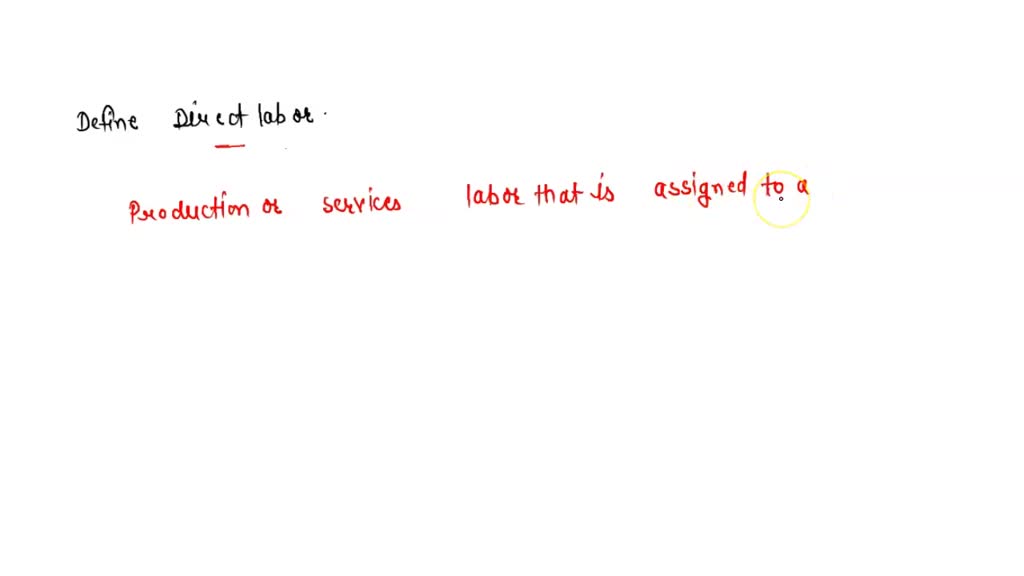 Define Direct labor.
Production or services labor that is assigned to a